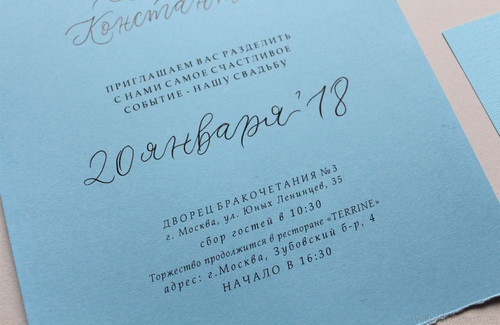 Константи
ПРИГЛАШАЕМ ВАС РАЗДЕЛИТЬ
С НАМИ САМОЕ СЧАСТЛИВОЕ
СОБЫТИЕ - НАШУ СВАДЬБУ
20 января '18
ДВОРЕЦ БРАКОЧЕТАНИЯ №3
г. Москва, ул. Юных Ленинцев, 35
сбор гостей в 10:30
Торжество продолжится в ресторане «TERRINE»
адрес: г.Москва, Зубовский б-р, 4
НАЧАЛО В 16:30